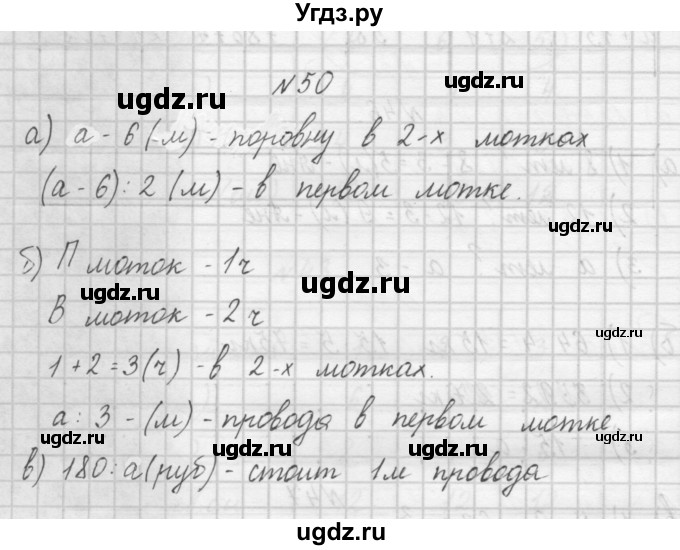 Угдз.ру
N 50
ugdz.ru
а) а - 6 (м) - поровну в 2-х мотках
ugdz.ru
(а - 6) : 2 (м) - в первом мотке.
ugdz.ru
ugdz.ru
б) П моток - 1ч
ugdz.ru
В моток - 2ч
ugdz.ru
1 + 2 = 3(ч) - в 2-х мотках.
ugdz.ru
а : 3 - (м) - провода в первом мотке.
ugdz.ru
ugdz.ru
в) 180 : а (руб) - стоит 1м провода
ugdz.ru
ugdz.ru
ugdz.ru